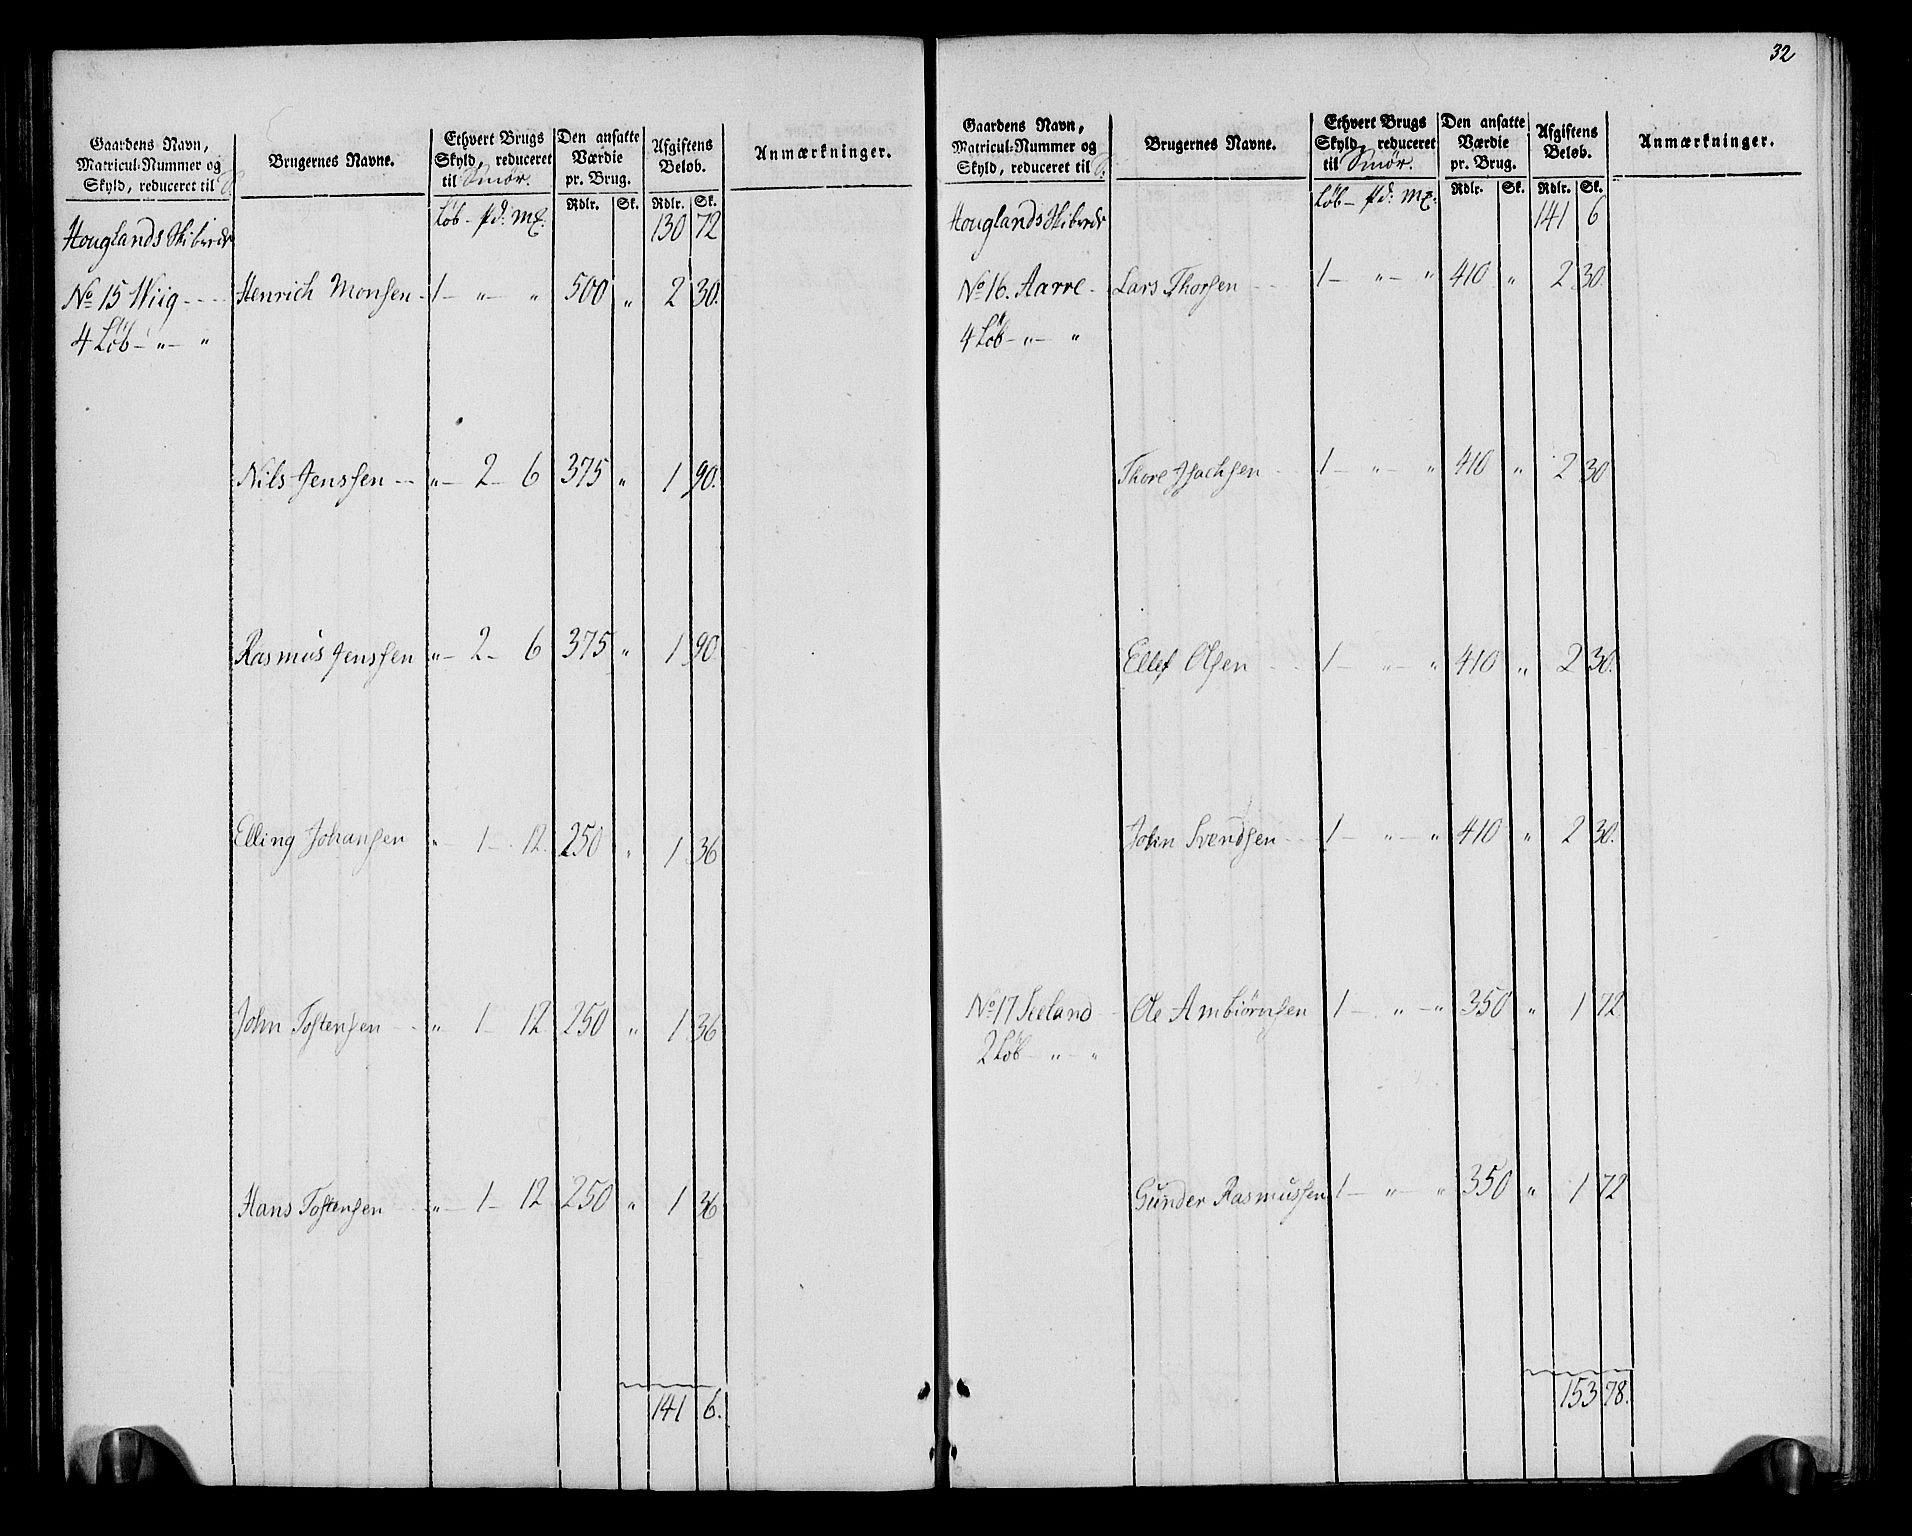 Gaardens Navn,
Matricul-Nummer og
Skyld, reduceret til S.
Brugernes Navne.
Ethvert Brugs
Skyld, reduceret
til Smör.
Den ansatte
Værdie
pr. Brug.
Afgiftens
Beløb.
Anmærkninger.
Rdlr. Sk. Rdlr. Sk.
Houglands Skibrede Löb - pd: m&. 130 72
No 15 Wiig - - - - Henrich Monsen - 1 - " - " 500 " 2 30.
4 Löb - " - "
Nils Jenssen - - " - 2 - 6 375 " 1 90.
Rasmus Jenssen " - 2 - 6 375 " 1 90.
Elling Johansen " 1 - 12 250 " 1 36
John Tostensen - - " 1 - 12 250 " 1 36
Hans Tostensen - - " - 1 - 12 250 " 1 36
141 6.
32
Gaardens Navn,
Matricul-Nummer og
Skyld, reduceret til S.
Brugernes Navne.
Ethvert Brugs
Skyld, reduceret
til Smör.
Den ansatte
Værdie
pr. Brug.
Afgiftens
Beløb.
Anmærkninger.
Rdlr. Sk. Rdlr. Sk.
Houglands Skibrede Löb - pd: m&. 141 6
No 16. Aarre - Lars Thorsen - - 1 - " - " 410 " 2 30.
4 Löb - " - "
Thore Isachsen - 1 - " - " 410 " 2 30
Ellef Olsen - - 1 - " - " 410 " 2 30.
John Svendsen - - 1 - " - " 410 " 2 30.
No 17 Seeland - Ole Ambiörnsen 1 - " - " 350 " 1 72
2 Löb " - "
Gunder Rasmussen 1 - " - " 350 " 1 72
153 78.